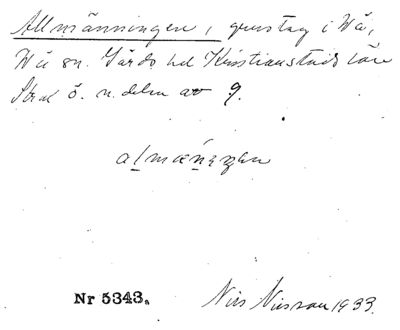 Allmänningen, grustag i Wä,
Wä sn. Gärds hd Kristianstads län
Strax ö. n. delen av 9.
almæniŋen
Nr 5343.
Nils Nilsson 1933.